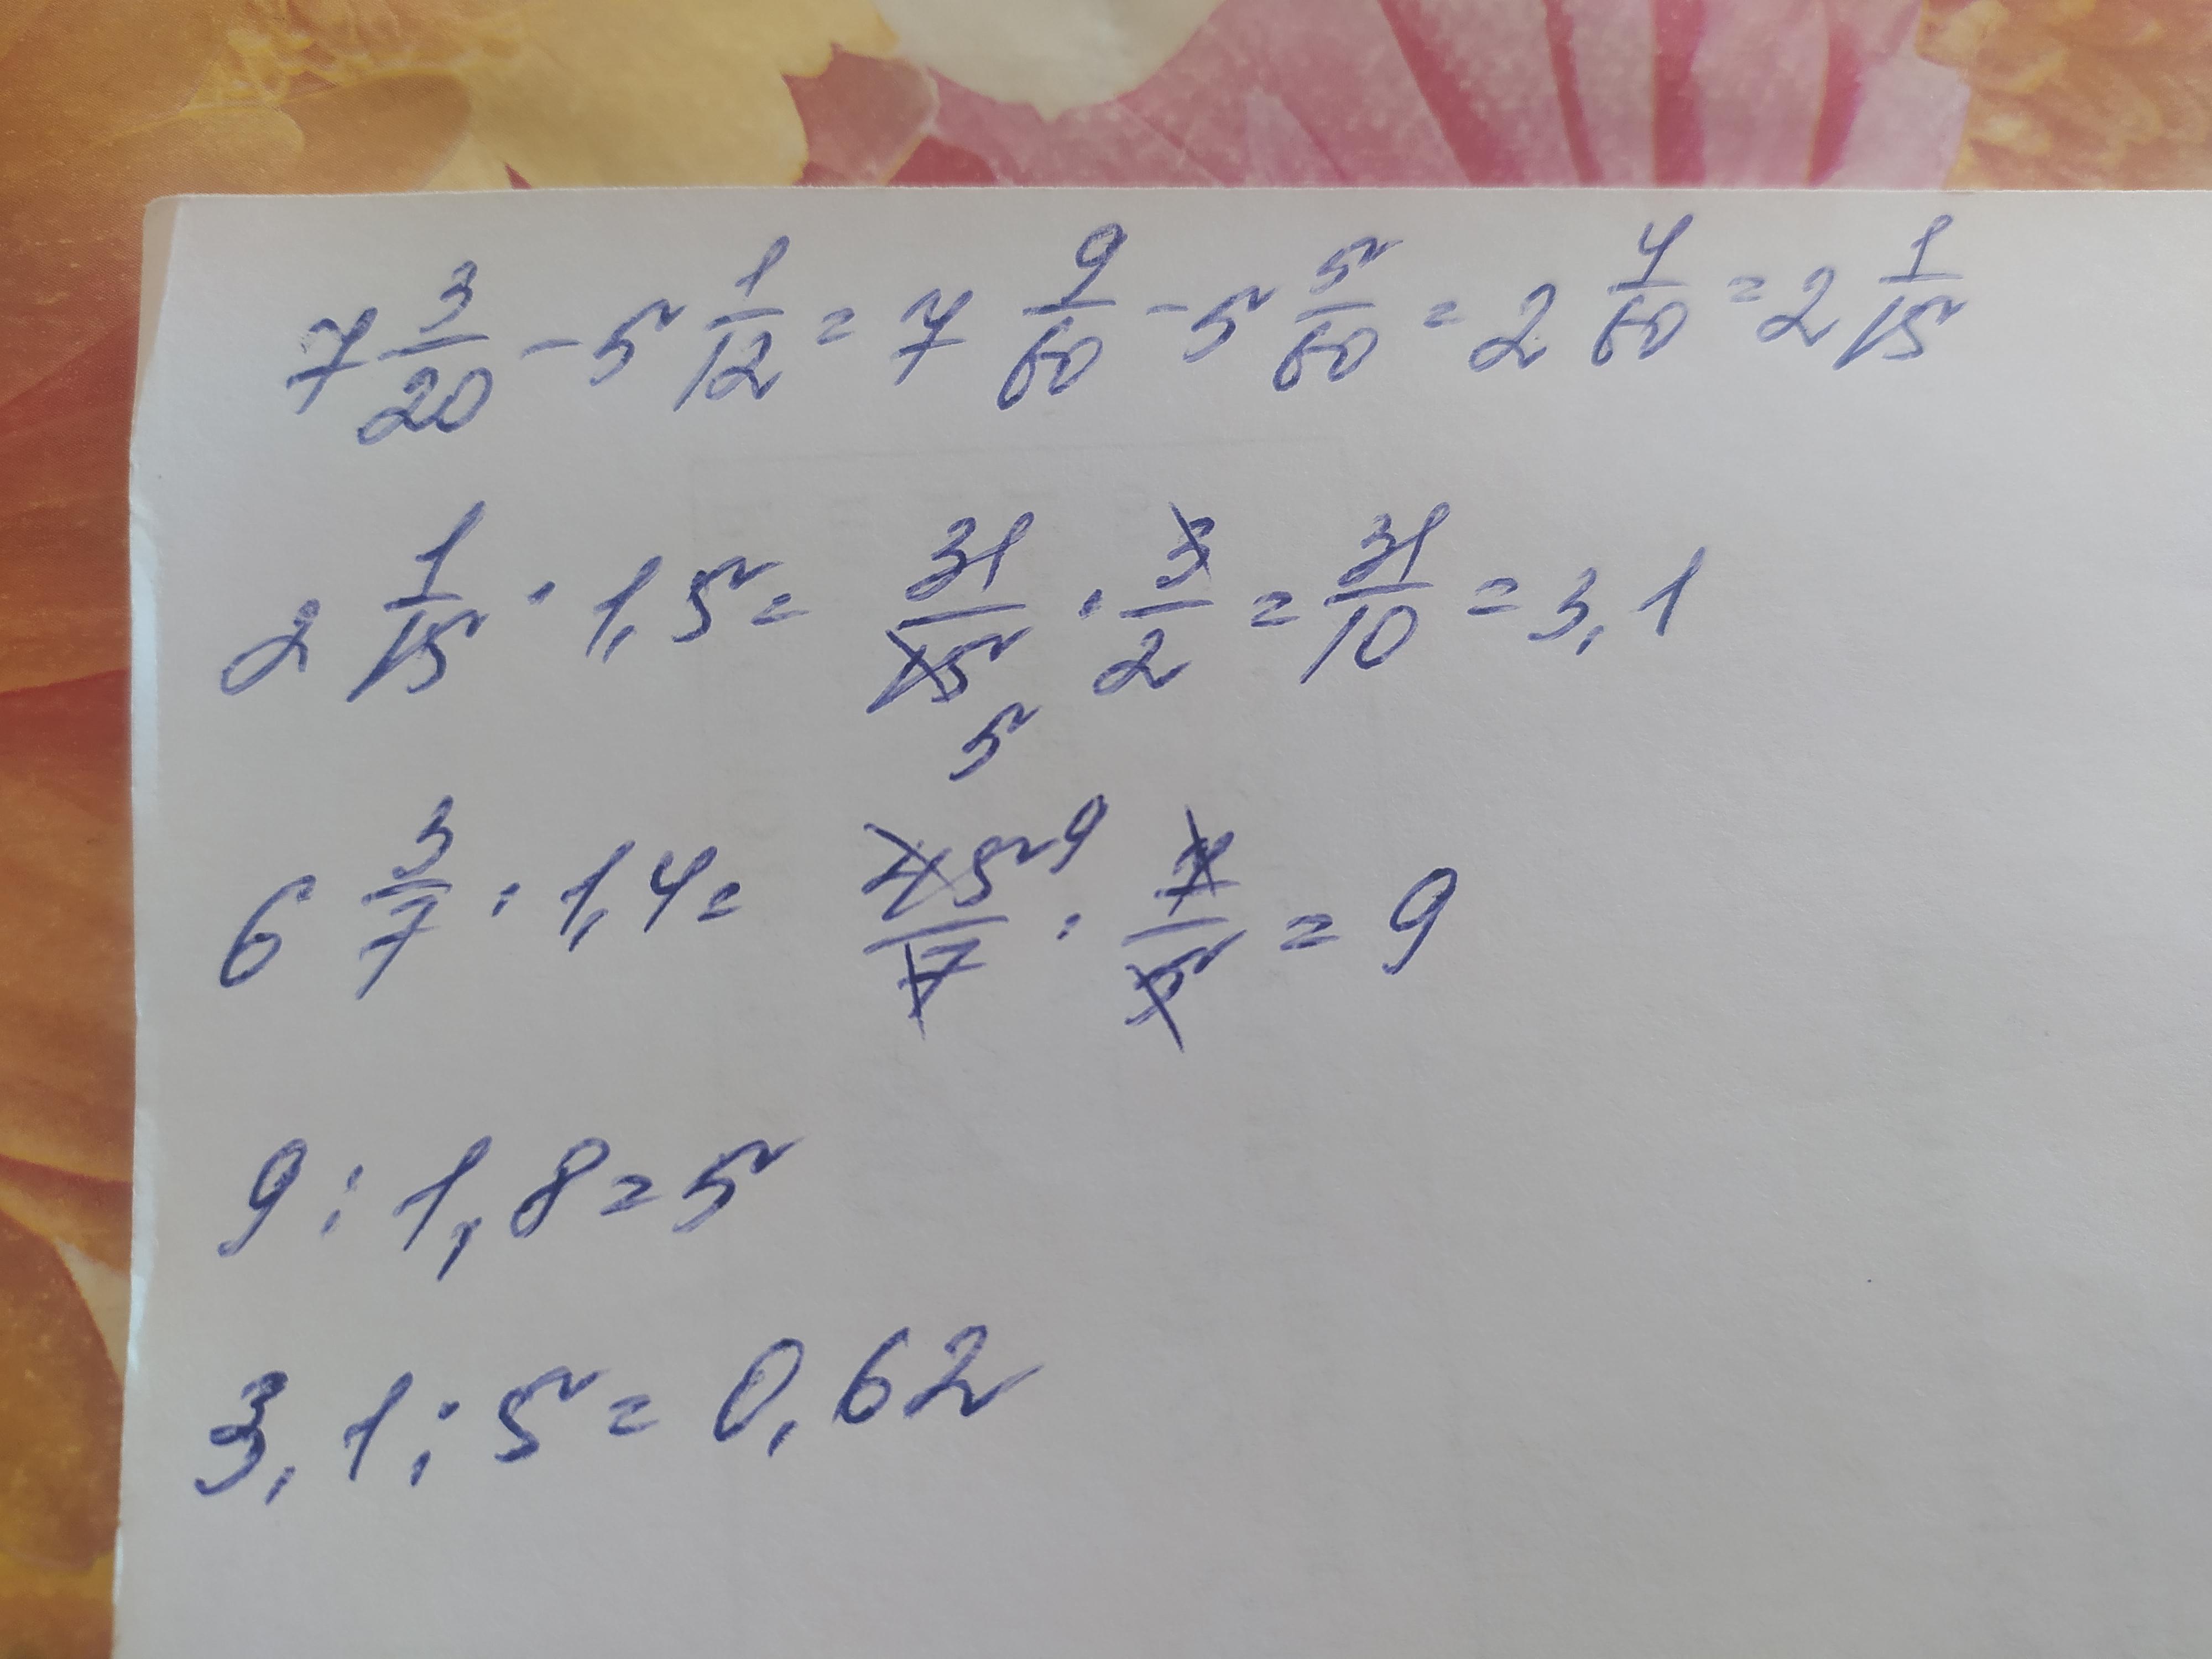 7 3/20 - 5 1/12 = 7 9/60 - 5 5/60 = 2 4/60 = 2 1/15
2 1/15 · 1,5 = 31/15 5 · 3/2 = 31/10 = 3,1
6 3/7 · 1,4 = 45 9/7 · 7/5 = 9
9 : 1,8 = 5
3,1 : 5 = 0,62